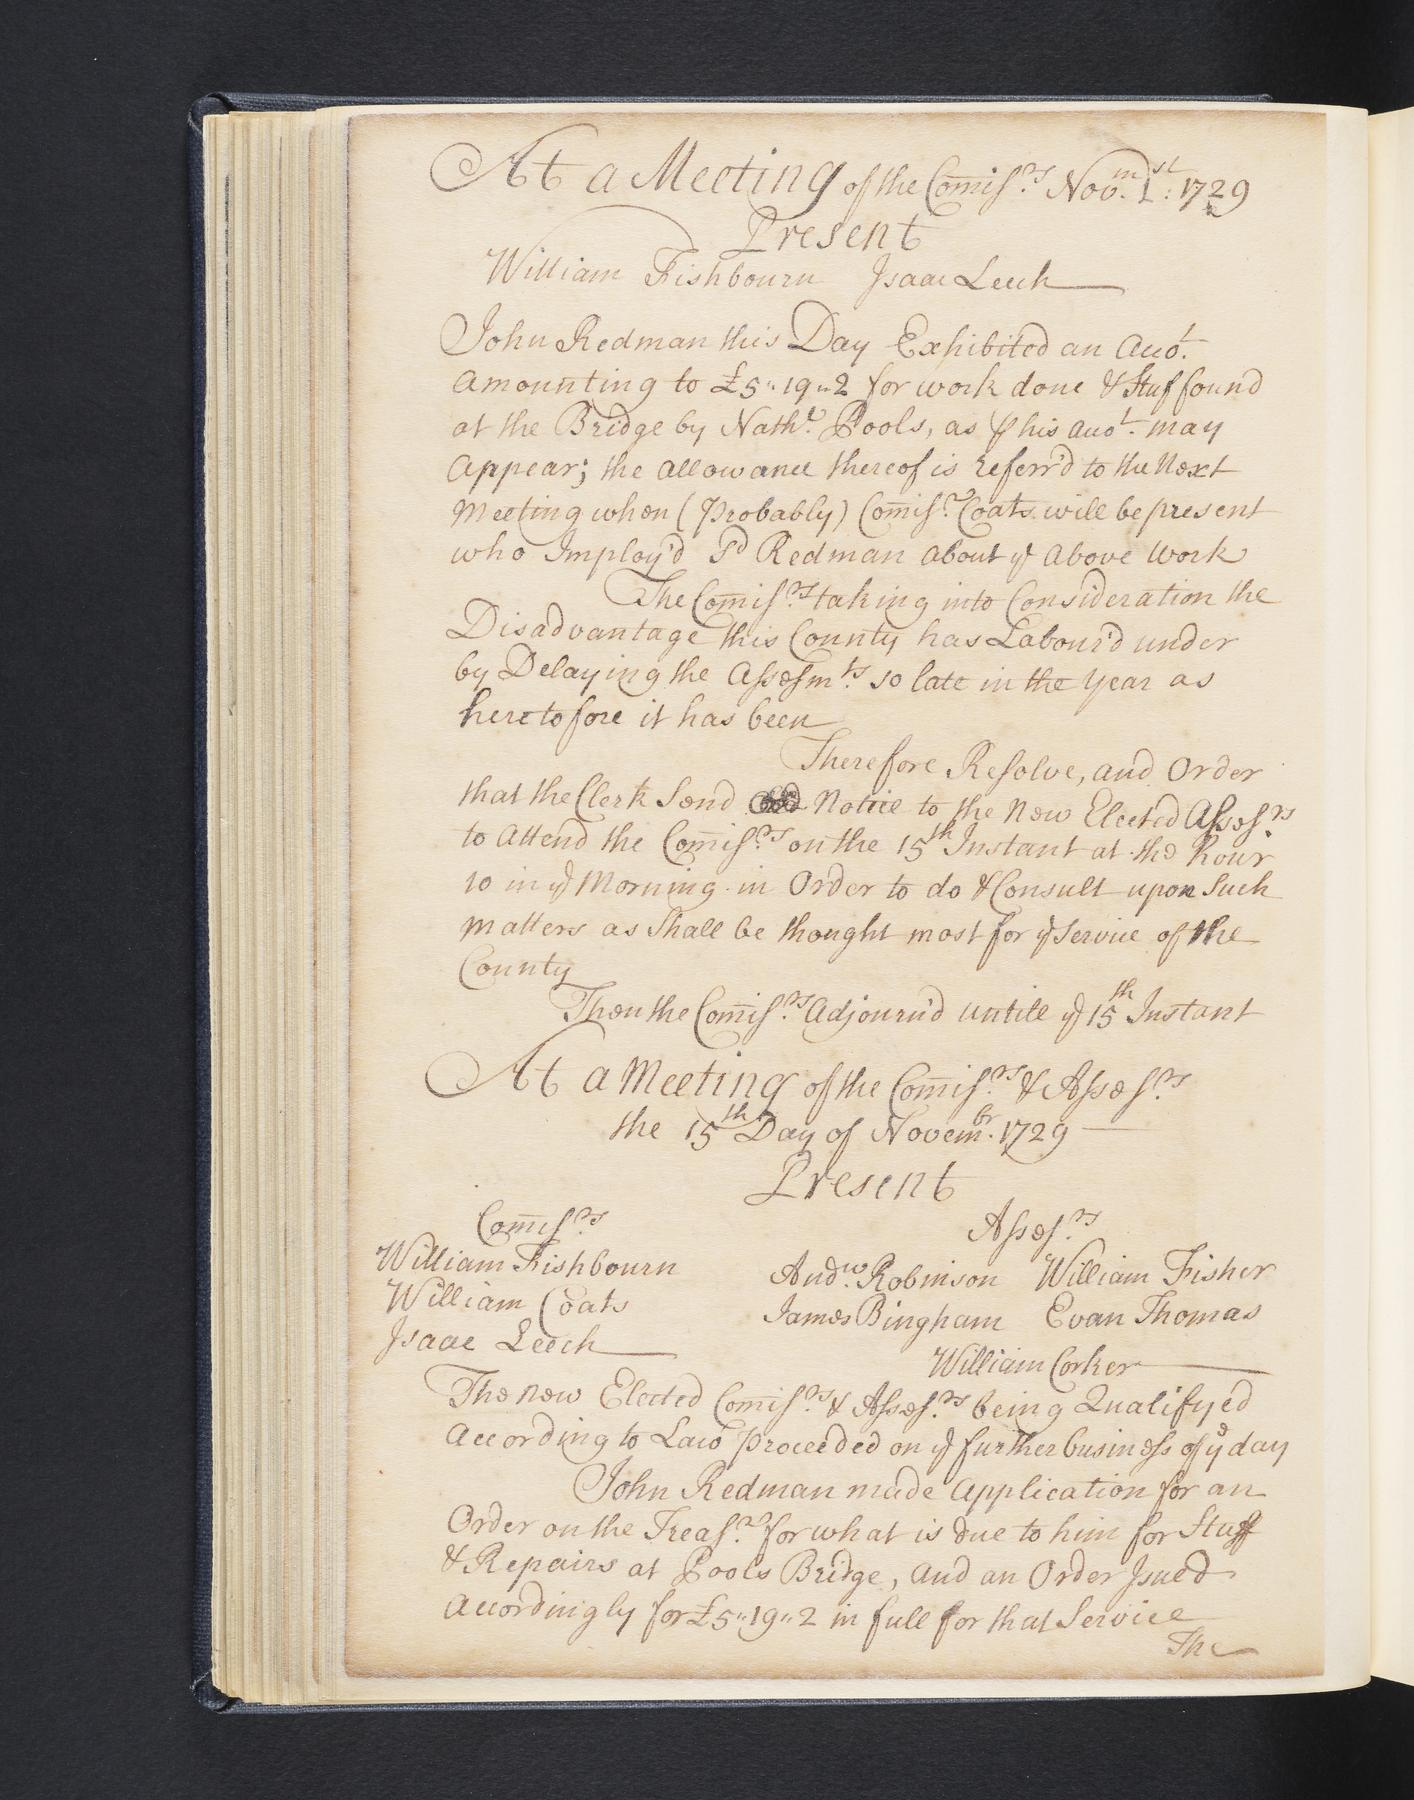 At a Meeting of the Com̅iſ.rs Nov.m 1st: 1729
Present
William Fishbourn Isaac Leech
John Redman this Day Exhibited an Acco.t
Amounting to £5„19„2 for work done & Stuf found
at the Bridge by Nath.l Pools, as ⅌ his Acco.t may
Appear; the Allowance thereof is referr'd to the Next
Meeting when (Probably) Com̅iſ.r Coats will be present
who Imploy'd Sd Redman about ye above work
The Com̅iſ.rs taking into Consideration the
Disadvantage this County has Labour'd under
by Delaying the Aſseſm.ts so late in the Year as
heretofore it has been
Therefore Reſolve, and Order
that the Clerk Send Notice to the New Elected Aſseſ.rs
to Attend the Com̅iſ.rs on the 15th Instant at the hour
10 in ye Morning in Order to do & Consult upon Such
matters as Shall be thought most for ye Service of the
County
Then the Com̅iſ.rs Adjourn'd untill ye 15th Instant
At a Meeting of the Com̅iſ.rs & Aſseſ.rs
the 15th Day of Novem.br 1729
Present
Com̅iſ.rs Aſseſ.rs
William Fishbourn And.w Robinson William Fisher
William Coats James Bingham Evan Thomas
Isaac Leech William Corker
The new Elected Com̅iſ.rs & Aſseſ.rs being Qualifyed
According to Law proceeded on ye further buisneſs of ye day
John Redman made Application for an
Order on the Treaſ.r for what is due to him for Stuff
& Repairs at Pools Bridge, and an Order Isued
Accordingly for £5„19„2 in full for that Service
The